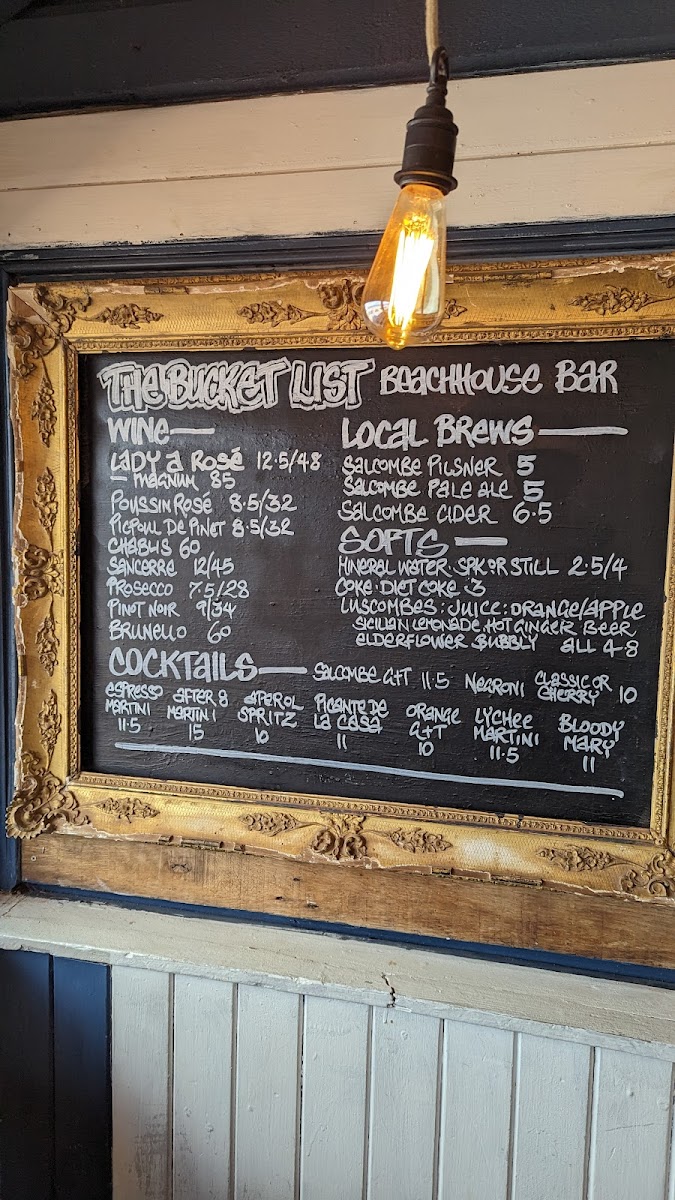 THE BUCKET LIST BEACHHOUSE BAR
WINE
LADY A ROSÉ 12.5/48
– MAGNUM 85
POUSSIN ROSÉ 8.5/32
PICPOUL DE PINET 8.5/32
CHABLIS 60
SANCERRE 12/45
PROSECCO 7.5/28
PINOT NOIR 9/34
BRUNELLO 60
LOCAL BREWS
SALCOMBE PILSNER 5
SALCOMBE PALE ALE 5
SALCOMBE CIDER 6.5
SOFTS
MINERAL WATER. SPK OR STILL 2.5/4
COKE. DIET COKE. 3
LUSCOMBES: JUICE: ORANGE/APPLE
SICILIAN LEMONADE. HOT GINGER BEER
ELDERFLOWER BUBBLY ALL 4.8
COCKTAILS
SALCOMBE G+T 11.5
NEGRONI CLASSIC OR CHERRY 10
ESPRESSO
MARTINI
11.5
AFTER 8
MARTINI
15
APEROL
SPRITZ
10
PICANTE DE
LA CASA
11
ORANGE
G+T
10
LYCHEE
MARTINI
11.5
BLOODY
MARY
11